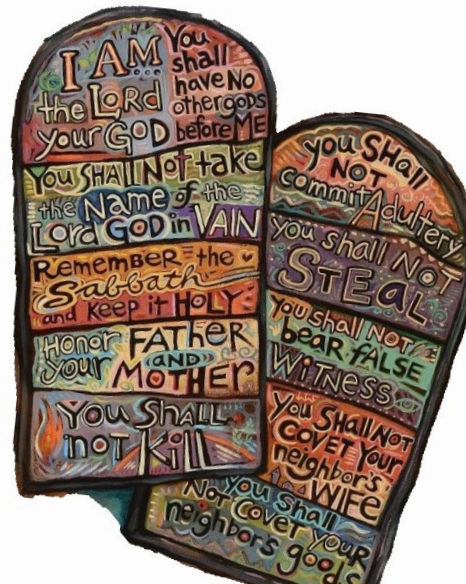 I AM...
the LORD
your GOD
You
shall
have No
other gods
before ME
You SHALL Not take
the Name of the
Lord GOD in VAIN
Remember the
Sabbath
and Keep it HOLY
Honor FATHER
your AND
MOTHER
You SHALL
not Kill
you SHall
NOT
commit Adultery
you shall NOT
STEaL
you shall NOT
bEaR FALSE
WITNESS
You SHALL NOT
COVET YOUR
neighbor's
WIFE
You Shall
Not Covet Your
neighbors goods